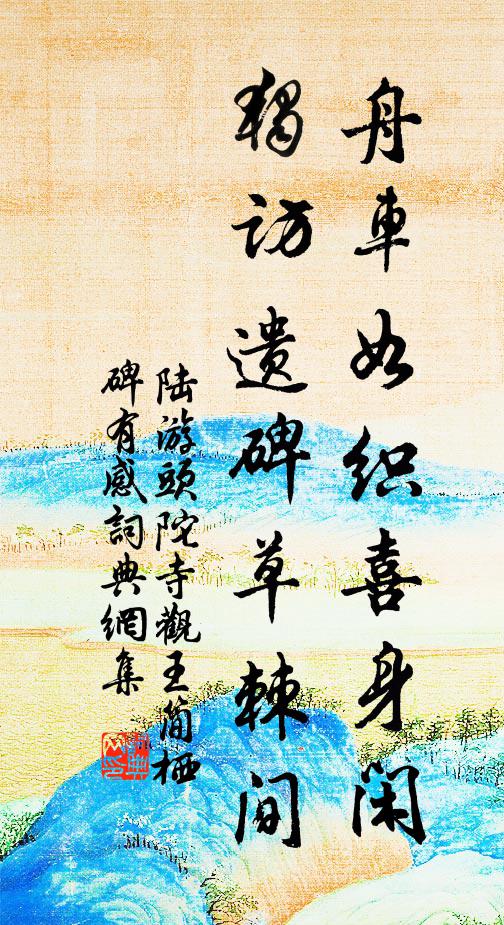 舟車如织喜身闲
獨訪遗碑草棘间
陆游頭陀寺觀王简栖
碑有感詞典網集